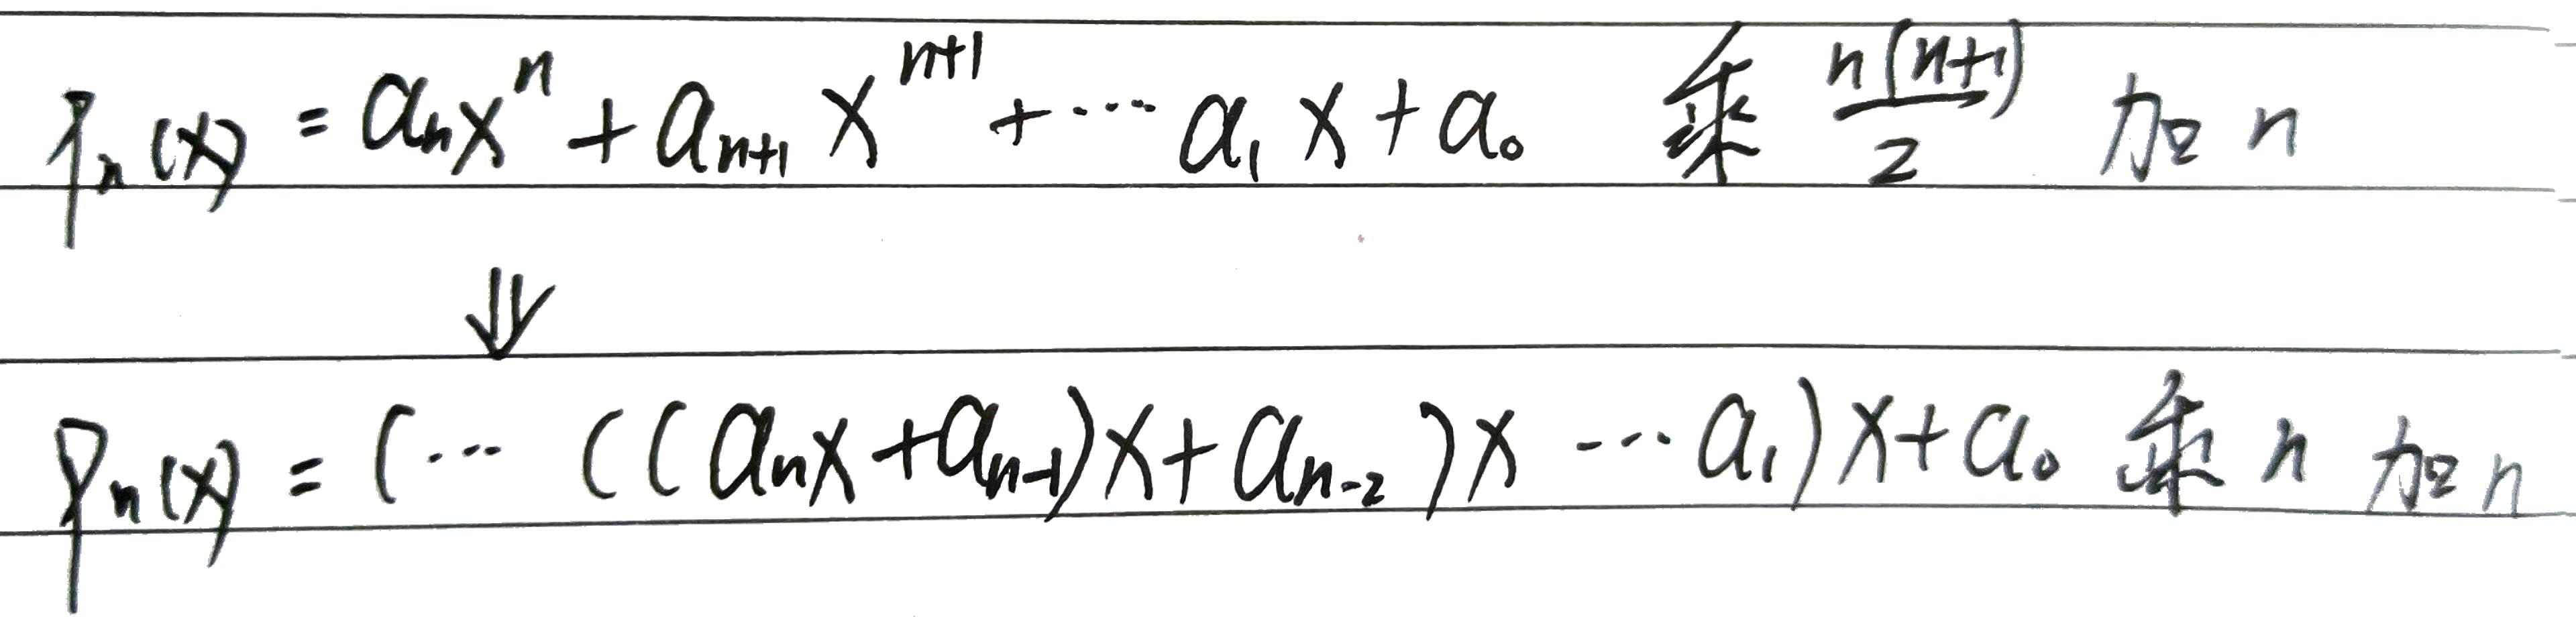 Pₙ(x) = aₙxⁿ + aₙ₊₁ xⁿ⁺¹ + ⋯ a₁ x + a₀ 乘 n(n+1)/2 加 n
⇓
Pₙ(x) = (⋯ ((aₙx + aₙ₋₁)x + aₙ₋₂)x ⋯ a₁)x + a₀ 乘 n 加 n